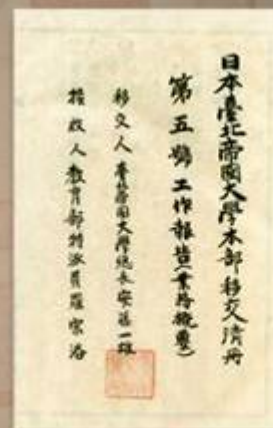 日本臺北帝國大學本部移交清册
第五號 工作報告(業務概要)
移交人 臺北帝國大學總長安藤一雄
接收人 教育部特派員羅宗洛